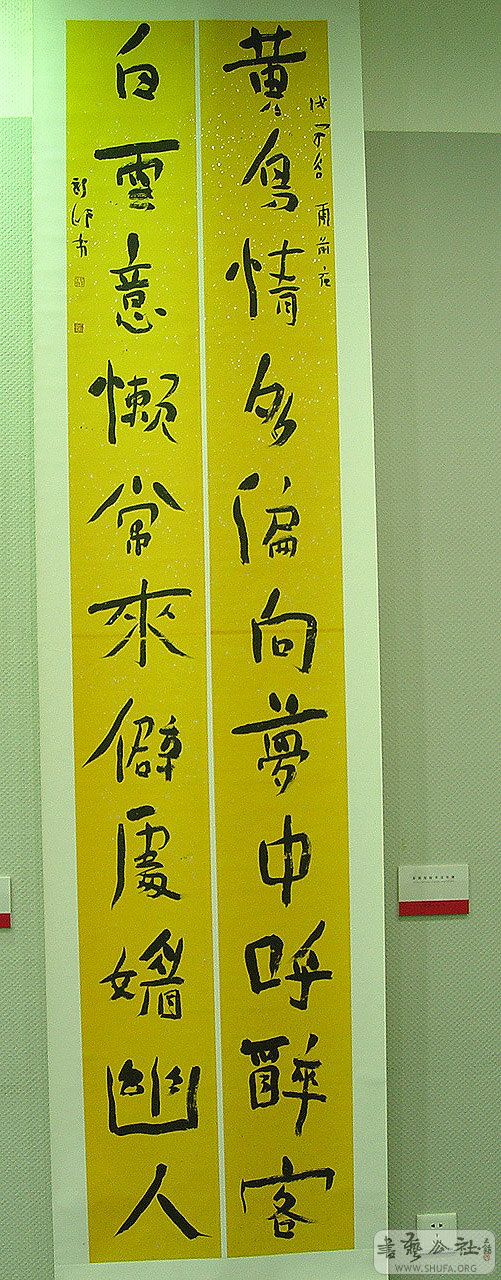 黄鳥情多偏向夢中呼醉客
白雲意懶常來僻處媚幽人
書藝公社
WWW.SHUFA.ORG